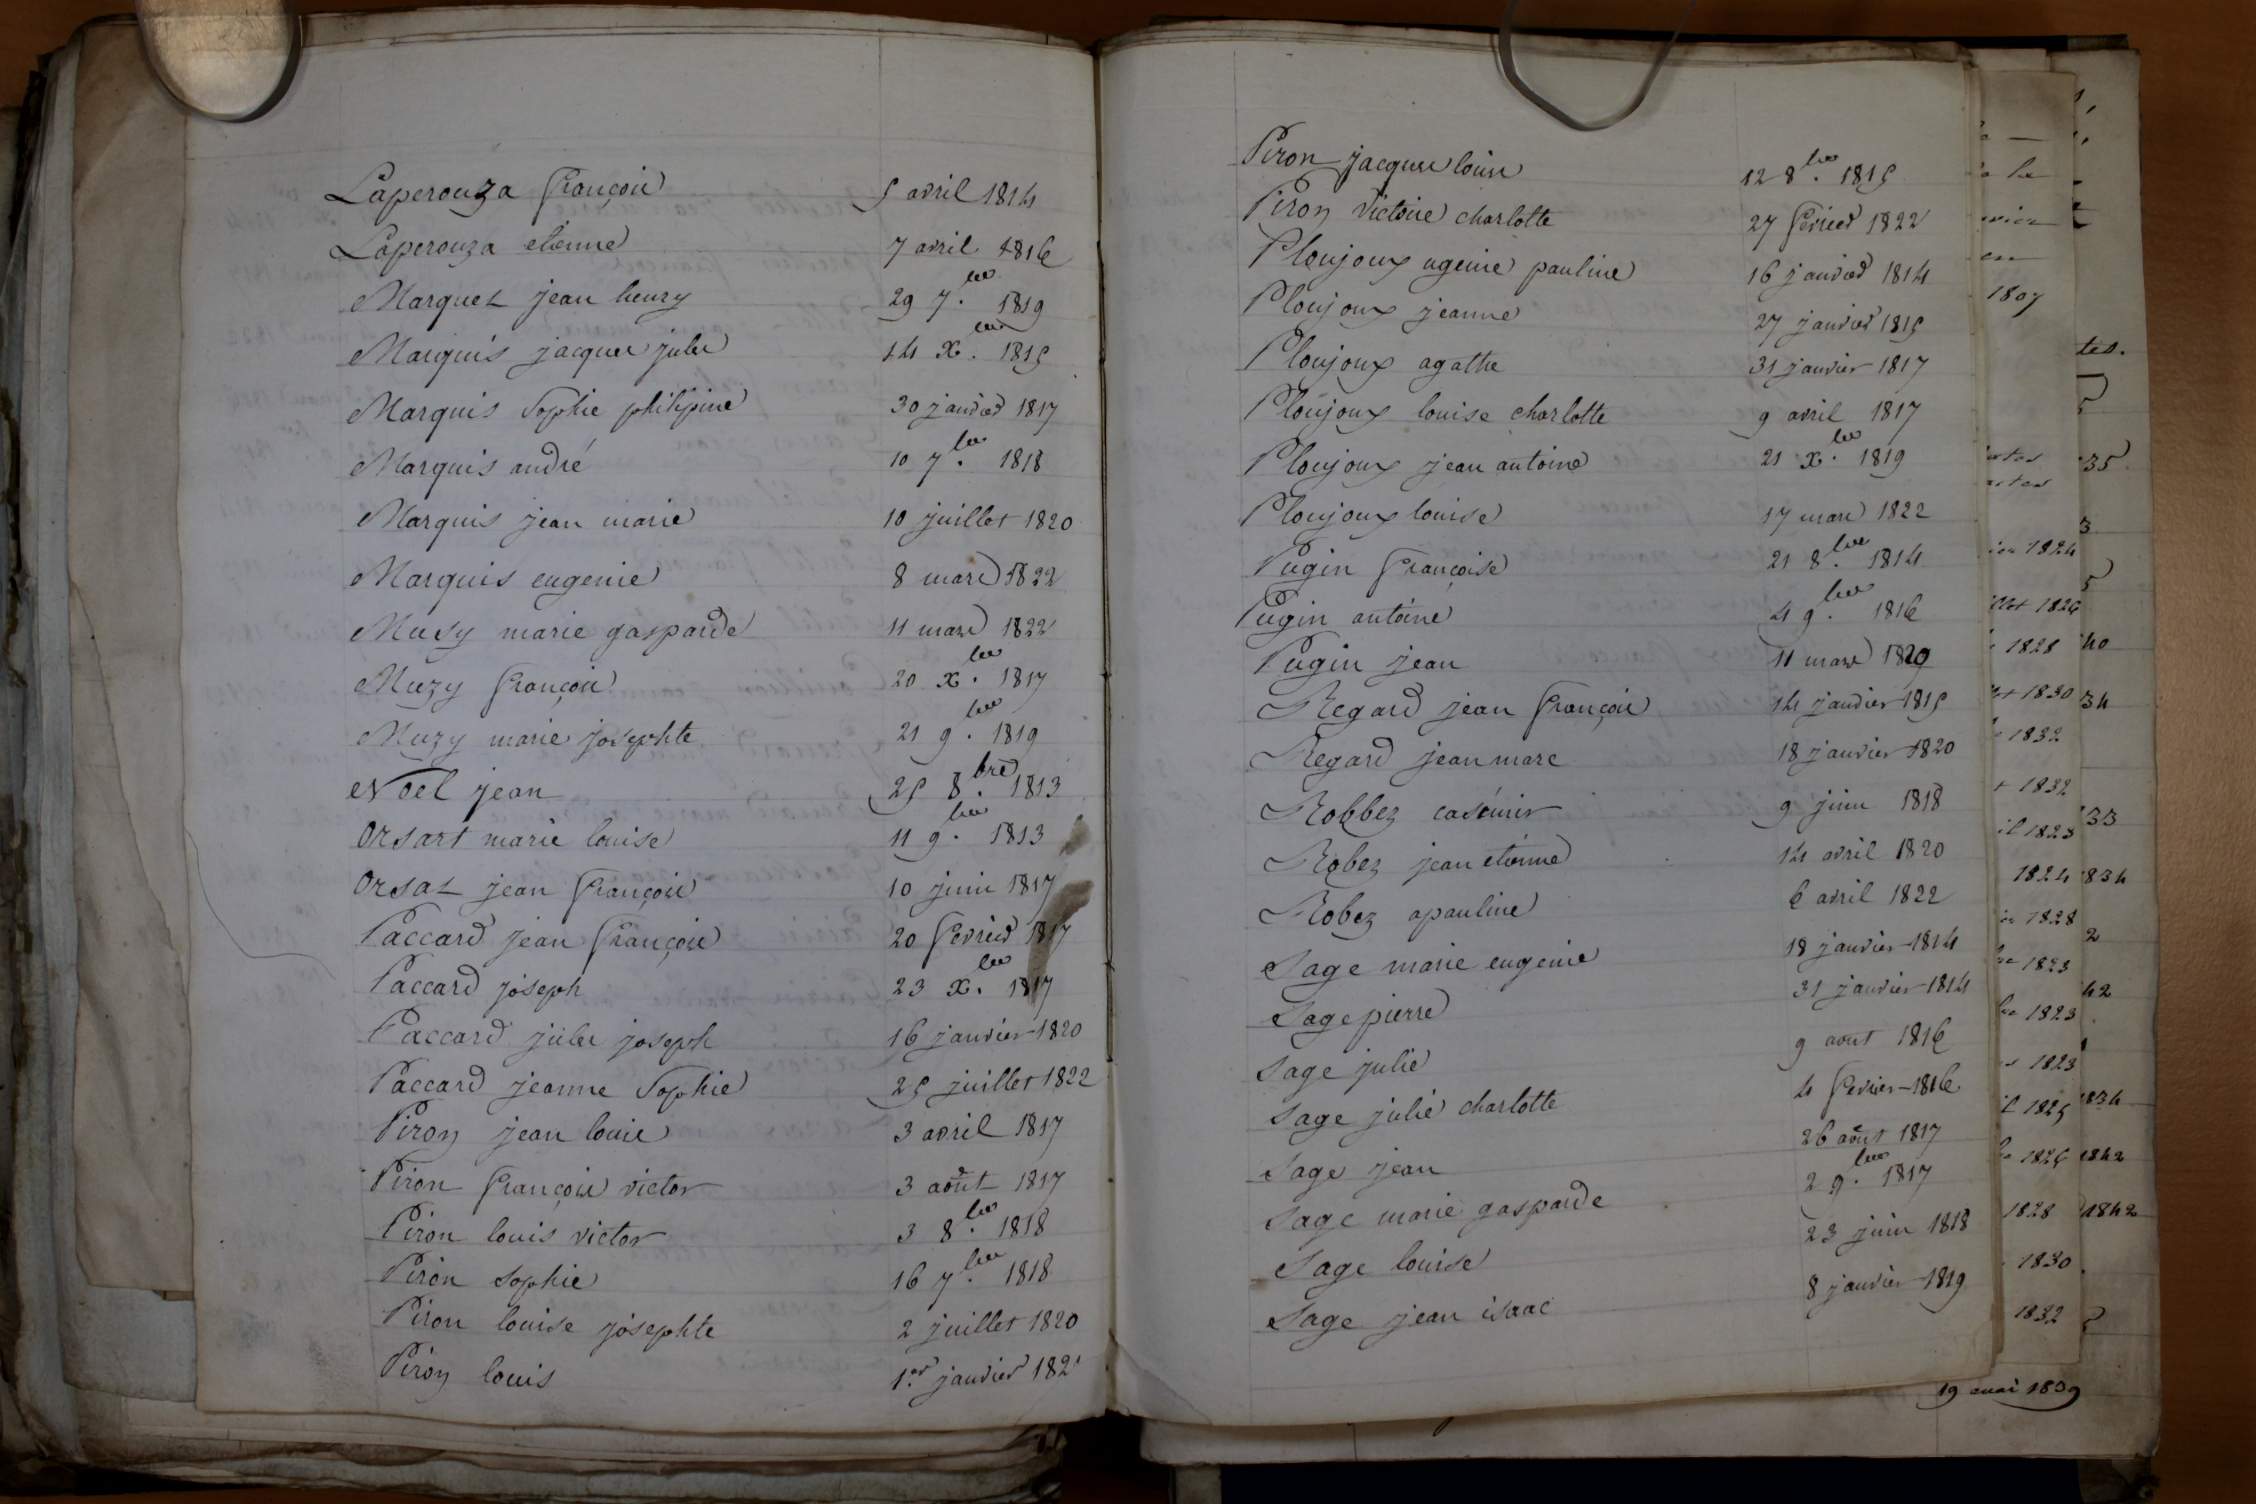 Laperouza françois 5 avril 1814
Laperouza etienne 7 avril 1816
Marquet jean henry 29 7.bre 1819
Marquis jacques jules 14 x.bre 1815
Marquis Sophie philipine 30 janvier 1817
Marquis andré 10 7.bre 1818
Marquis jean marie 10 juillet 1820
Marquis eugenie 8 mars 1822
Musy marie gasparde 11 mars 1822
Muzy françois 20 x.bre 1817
Muzy marie josephte 21 9.bre 1819
Noel jean 25 8.bre 1813
Orsart marie louise 11 9.bre 1813
Orsat jean françois 10 juin 1817
Paccard jean françois 20 fevrier 1817
Paccard joseph 23 x.bre 1817
Paccard jules joseph 16 janvier 1820
Paccard jeanne Sophie 25 juillet 1822
Piron jean louis 3 avril 1817
Piron françois victor 3 août 1817
Piron louis victor 3 8.bre 1818
Piron Sophie 16 7.bre 1818
Piron louise josephte 2 juillet 1820
Piron louis 1.er janvier 1821
Piron jacques louis 12 8.bre 1815
Piron victoire charlotte 27 fevrier 1822
Ploujoux ugenie pauline 16 janvier 1814
Ploujoux jeanne 27 janvier 1815
Ploujoux agathe 31 janvier 1817
Ploujoux louise charlotte 9 avril 1817
Ploujoux jean antoine 21 x.bre 1819
Ploujoux louise 17 mars 1822
Pugin françoise 21 8.bre 1814
Pugin antoine 4 9.bre 1816
Pugin jean 11 mars
Regard jean françois 14 janvier 1815
Regard jean marc 18 janvier 1820
Robbez casimir 9 juin 1818
Robez jean etienne 14 avril 1820
Robez apauline 6 avril 1822
Sage marie eugenie 18 janvier 1814
Sage pierre 31 janvier 1814
Sage julie 9 aout 1816
Sage julie charlotte 4 fevrier 1816
Sage jean 26 août 1817
Sage marie gasparde 2 9.bre 1817
Sage louise 23 juin 1818
Sage jean isaac 8 janvier 1819
1807
1824
1826
1828
1830
1832
1832
1823
1824
1828
1823
1823
1823
1825
1826
1828
1830
1832
1842
19 mai 1839